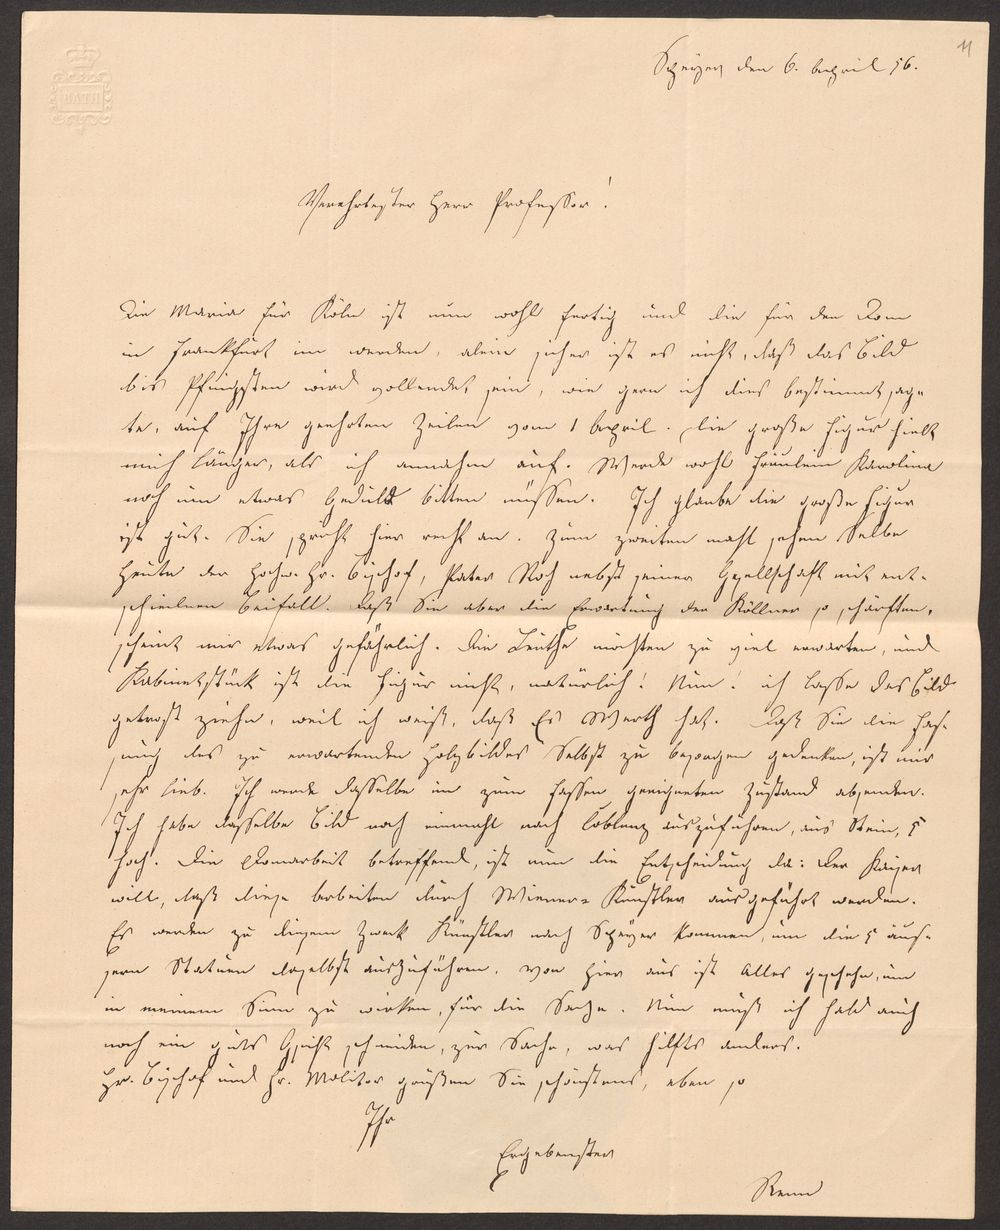 11
BATH
Speyer den 6. April 56.
Verehrtester Herr Professor!
Die Maria für Köln ist nun wohl fertig und die für den Dom
in Frankfurt im werden, alein sicher ist es nicht, daß das Bild
bis Pfingsten wird vollendet sein, wie gern ich dies bestimmt sag-
te, auf Ihre geehrten Zeilen vom 1 April. Die große Figur hielt
mich länger, als ich annahm auf. Werde wohl Fräulein Karolina
noch um etwas Geduld bitten müssen. Ich glaube die große Figur
ist gut. Sie spricht hier recht an. Zum zweiten mahl sahen Selbe
heute der Hochw. Hr. Bischof, Pater Roh nebst seiner Gesellschaft mit ent-
schiednen Beifall. Daß Sie aber die Erwartung der Köllner so schärften,
scheint mir etwas gefährlich. Die Leuthe möchten zu viel erwarten, und
Kabinetstück ist die Figur nicht, natürlich! Nun! ich lasse das Bild
getrost ziehn, weil ich weiß, daß Es Werth hat. Daß Sie die Fas-
sung des zu erwartenden Holzbildes Selbst zu besorgen gedenken, ist mir
sehr lieb. Ich werde dasselbe im zum Fassen geeigneten Zustand absenden.
Ich habe dasselbe Bild noch einmahl nach Coblenz auszuführen, aus Stein, 5
hoch. Die Domarbeit betreffend, ist nun die Entscheidung da: Der Kaiser
will, daß diese Arbeiten durch Wiener-Künstler ausgeführt werden.
Es werden zu diesem Zweck Künstler nach Speyer kommen, um die 5 äus-
sern Statuen daselbst auszuführen. Von hier aus ist Alles geschehn, um
in meinem Sinn zu wirken, für die Sache. Nun muß ich halt auch
noch ein guts Gsicht schneiden, zur Sache, was hilfts anders.
Hr. Bischof und Hr. Molitor grüßen Sie schönstens, eben so
Ihr
Ergebenster
Renn